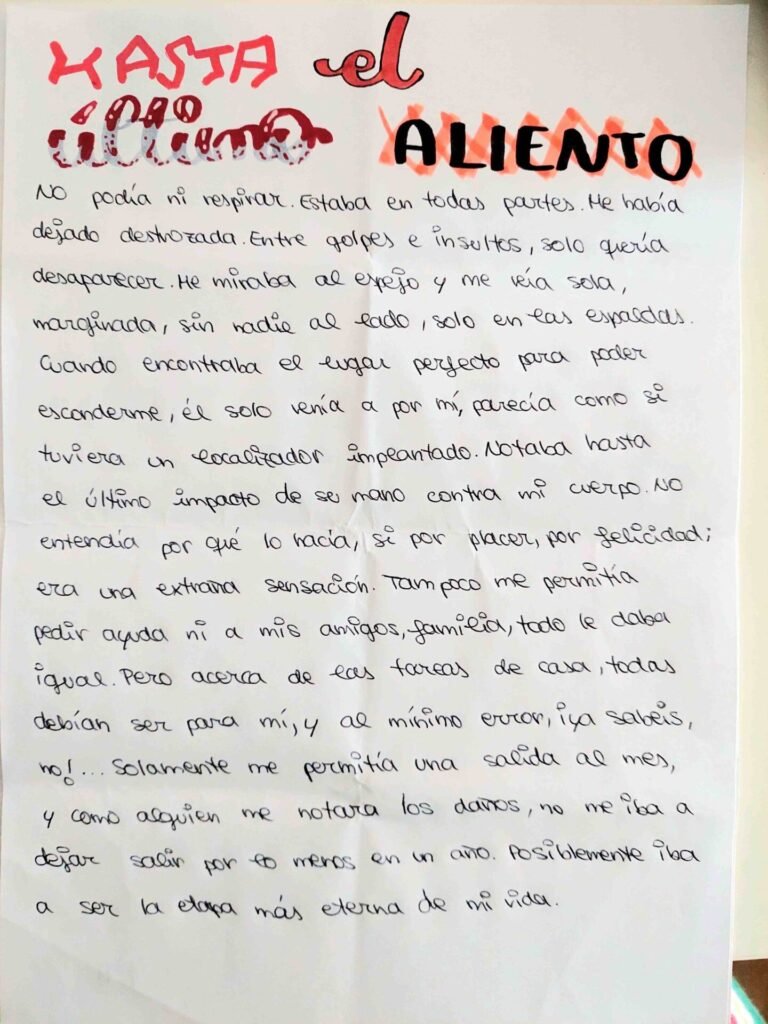 HASTA el
último ALIENTO
No podía ni respirar. Estaba en todas partes. Me había
dejado destrozada. Entre golpes e insultos, solo quería
desaparecer. Me miraba al espejo y me veía sola,
marginada, sin nadie al lado, solo en las espaldas.
Cuando encontraba el lugar perfecto para poder
esconderme, él solo venía a por mí, parecía como si
tuviera un localizador implantado. Notaba hasta
el último impacto de su mano contra mi cuerpo. No
entendía por qué lo hacía, si por placer, por felicidad;
era una extraña sensación. Tampoco me permitía
pedir ayuda ni a mis amigos, familia, todo le daba
igual. Pero acerca de las tareas de casa, todas
debían ser para mí, y al mínimo error, ¡ya sabeis,
no!... Solamente me permitía una salida al mes,
y como alguien me notara los daños, no me iba a
dejar salir por lo menos en un año. Posiblemente iba
a ser la etapa más eterna de mi vida.